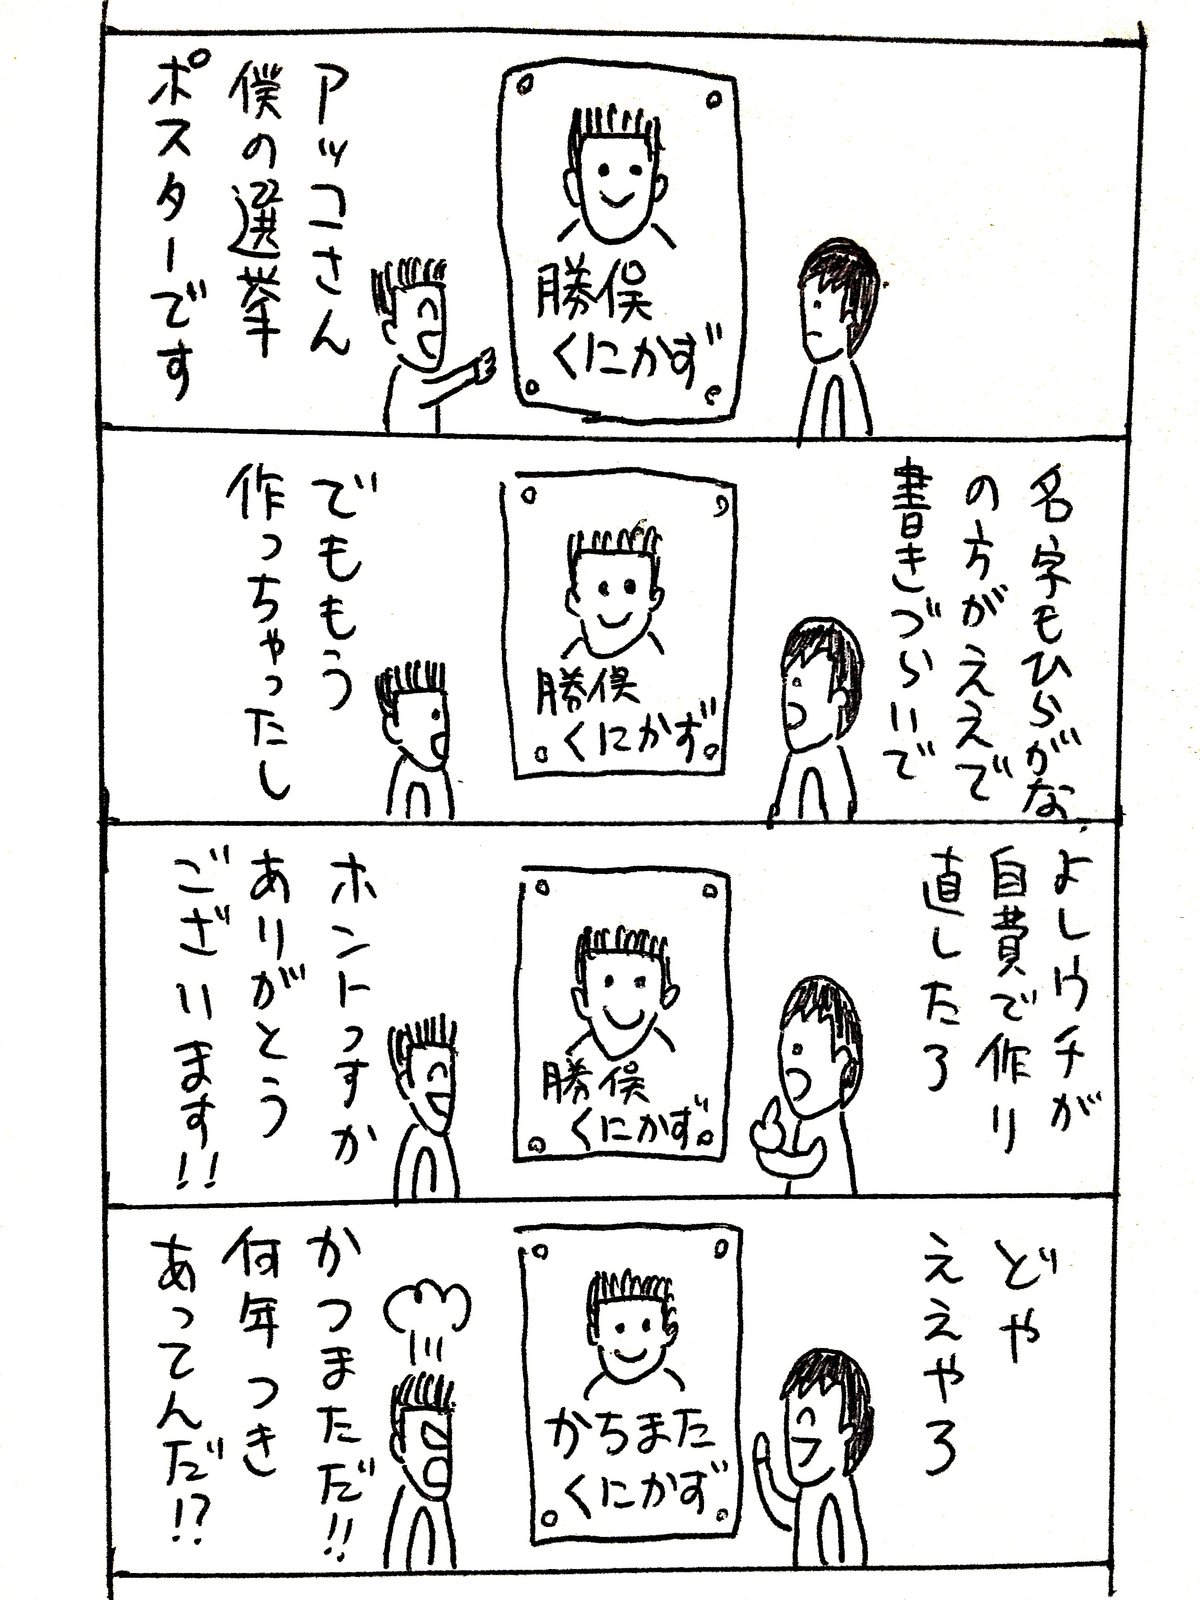 アッコさん
僕の選挙
ポスターです
勝俣
くにかず
名字もひらがな
の方がええで
書きづらいで
勝俣
くにかず
でももう
作っちゃったし
よしウチが
自費で作り
直したろ
勝俣
くにかず
ホントっすか
ありがとう
ございます!!
どや
ええやろ
かちまた
くにかず
かつまただ!!
何年つき
あってんだ!?